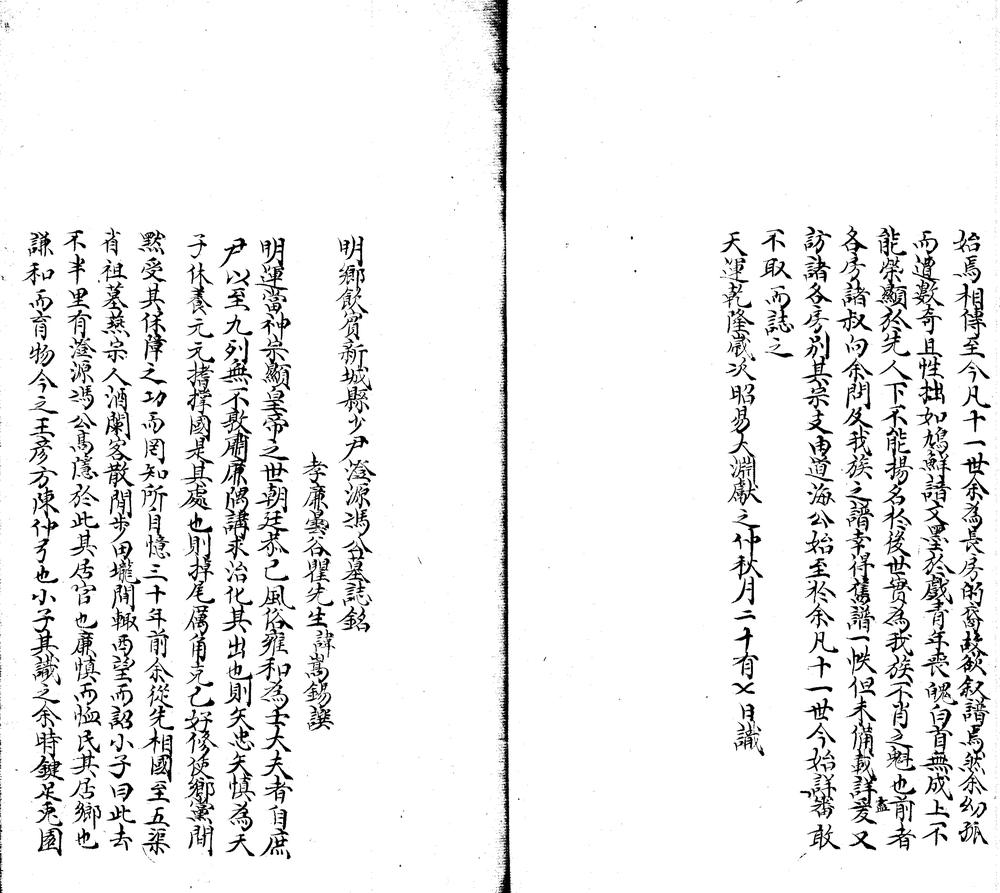 始焉相傳至今凡十一世余為長房的裔故欲叙譜焉然余幼孤
而遭數奇且性拙如鳩鮮諳文墨於戲青年喪魄白首無成上不
能榮顯於先人下不能揚名於後世實為我族不肖之魁也前者
各房諸叔向余問及我族之譜幸得舊譜一帙但未備載詳爰又
訪諸各房別其宗支由道海公始至於余凡十一世今始詳審敢
不取而誌之
天運乾隆歲次昭昜大淵獻之仲秋月二十有七日識
明鄉飲賓新城縣少尹澄源馮公墓誌銘
孝廉曇谷瞿先生諱嵩錫譔
明運當神宗顯皇帝之世朝廷恭己風俗雍和為士大夫者自庶
尹以至九列無不敦礪廉隅講求治化其出也則矢忠矢慎為天
子休養元元搘撑國是其處也則掉尾厲角克己好修使鄉黨閭
黙受其保障之功而罔知所自憶三十年前余從先相國至五渠
省祖墓燕宗人酒闌客散閒步田壠間輙西望而詔小子曰此去
不半里有澄源馮公髙隱於此其居官也廉慎而恤民其居鄉也
謙和而育物今之王彥方陳仲弓也小子其識之余時鍵足兎園